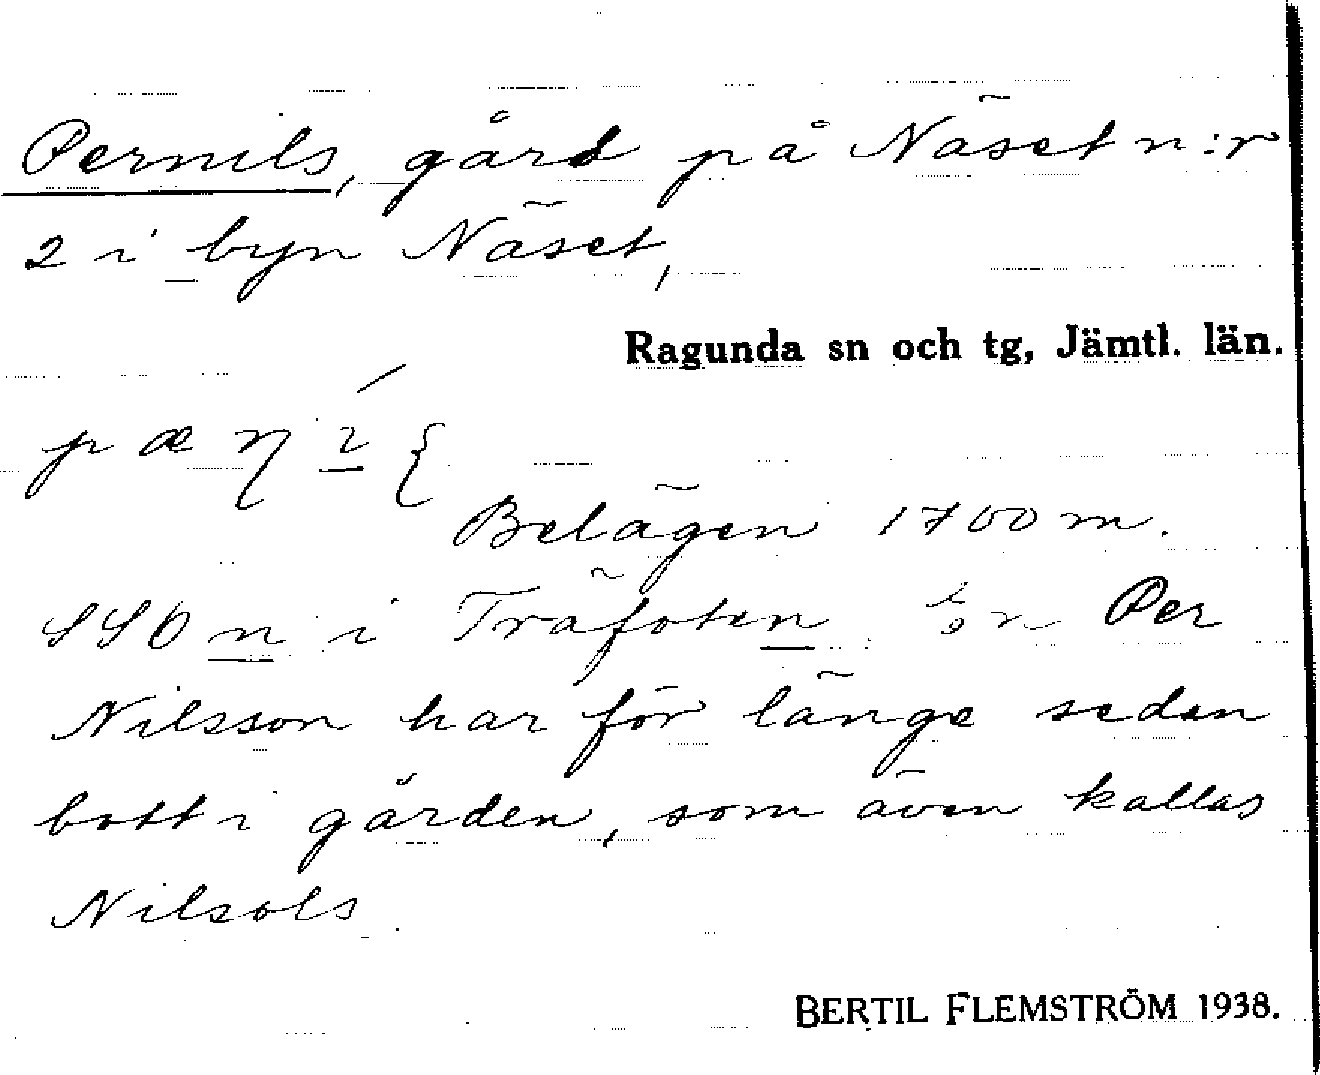 Pernils, gård på Näset n:r
2 i byn Näset,
Ragunda sn och tg, Jämtl. län.
Belägen 1700 m.
SSO n i Träfoten. En Per
Nilsson har för länge sedan
bott i gården, som även kallas
Nilsols.
BERTIL FLEMSTRÖM 1938.